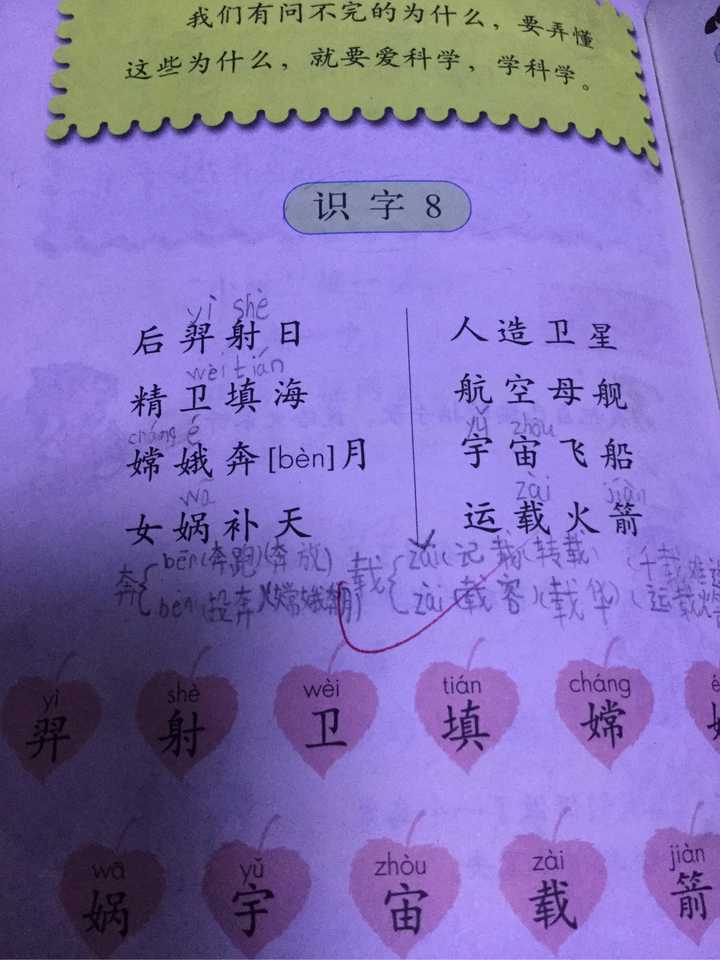 我们有问不完的为什么，要弄懂
这些为什么，就要爱科学，学科学。
识字8
yì shè
后羿射日
wèi tián
精卫填海
cháng é
嫦娥奔[bèn]月
wā
女娲补天
人造卫星
航空母舰
yǔ zhòu
宇宙飞船
zài jiàn
运载火箭
奔{bēn(奔跑)(奔放)
bèn(投奔)(嫦娥奔月)
载{zǎi(记载)(转载)(千载难逢
zài(载客)(载华)(运载火箭
yì shè wèi tián cháng
羿 射 卫 填 嫦
wā yǔ zhòu zài jiàn
娲 宇 宙 载 箭